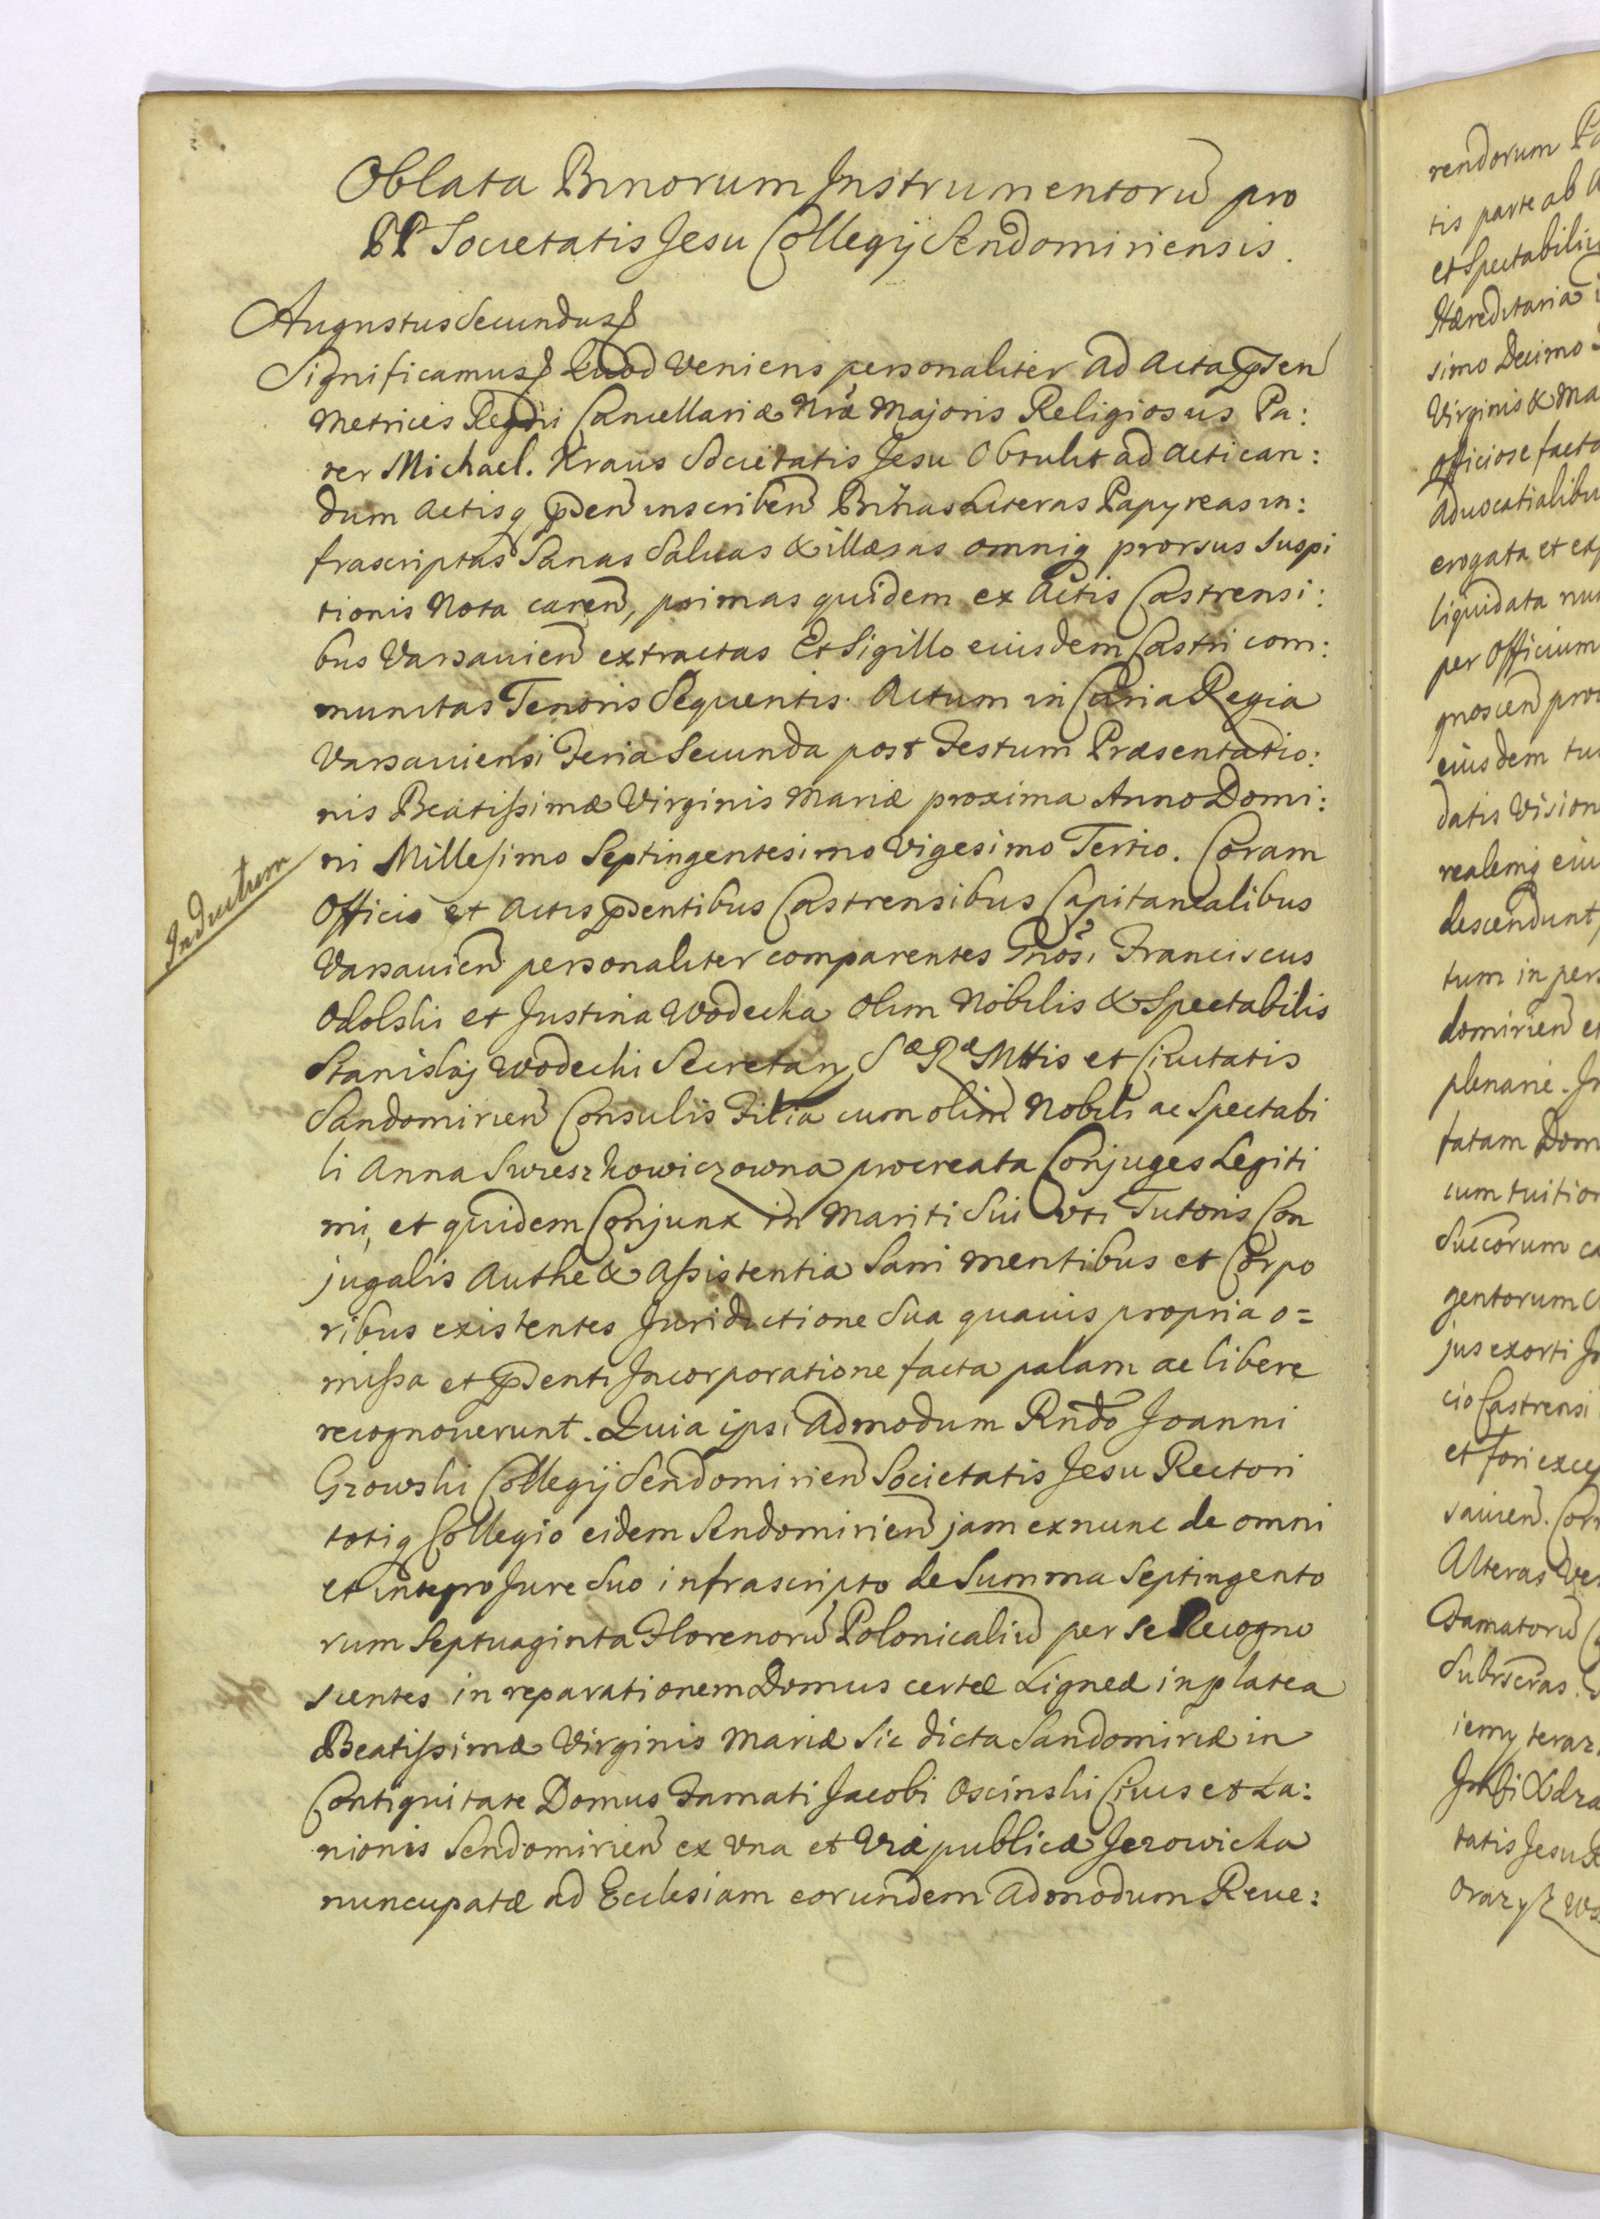 Oblata Binorum Instrumentorū pro
PP Societatis Jesu Collegij Sendomiriensis.
Augustus Secundus
Significamus Quod Veniens personaliter ad Acta pñsen
Metrices Regni Cancellariæ Nræ Majoris Religiosus Pa:
ter Michael. Kraus Societatis Jesu Obtulit ad actican:
dum Actisq pñden inscriben Binas Literas Papyreas in:
frascriptas Sanas Saluas & illæsas omniq prorsus Suspi
tionis Nota caren, primas quidem ex Actis Castrensi:
bus Varsauien extractas Et Sigillo eiusdem Castri com:
munitas Tenoris Sequentis. Actum in Curia Regia
Varsauiensi Feria Secunda post Festum Præsentatio:
nis Beatissimæ Virginis Mariæ proxima Anno Domi:
ni Millesimo Septingentesimo Vigesimo Tertio. Coram
Inductum
Officio et Actis pñdentibus Castrensibus Capitanealibus
Varsauien personaliter comparentes Gnosi Franciscus
Odolski et Justina Wodecka olim Nobilis & Spectabilis
Stanislaj Wodecki Secretarij Sæ Ræ Mttis et Ciuitatis
Sandomirien Consulis Filia cum olim Nobili ac Spectabi
li Anna Swieszkowiczowna procreata Conjuges Legiti
mi, et quidem Conjunx in Mariti Sui uti Tutoris Con
jugalis Authe & Assistentia Sani mentibus et Corpo
ribus existentes Juridictione Sua quauis propria o=
missa et pñdenti Incorporatione facta palam ac libere
recognouerunt. Quia ipsi Admodum Rndo Joanni
Growski Collegij Sendomirien Societatis Jesu Rectori
totiq Collegio eidem Sendomirien jam ex nunc de omni
et integro Jure Suo infrascripto de Summa Septingento
rum Septuaginta Florenorū Polonicaliū per se Recogno
scentes in reparationem Domus certæ Ligneæ in platea
Beatissimæ Virginis Mariæ Sic dicta Sandomiriæ in
Contiguitate Domus Famati Jacobi Oscinski Ciuis et La:
nionis Sendomirien ex una et Viæ publicæ Jezowicka
nuncupatæ ad Ecclesiam eorundem Admodum Reue:
rendorum
tis parte ab
et Spectabiliu
Hæreditaria
simo Decimo
Virginis & Ma
officiose facto
aduocatialibu
erogata et exp
liquidata nu
per Officium
gnoscen pro
eiusdem tu
datis Vision
realemq eiu
descendunt,
tum in pers
domirien et
plenarie. In
fatam Dom
cum tuition
Succorum ca
gentorum
jus exorti
cio Castrensi
et fori excep
sauien. Corr
Alteras Ver
Famatorū
Subrscras.
iemy teraz
tatis Jesu R
oraz yz